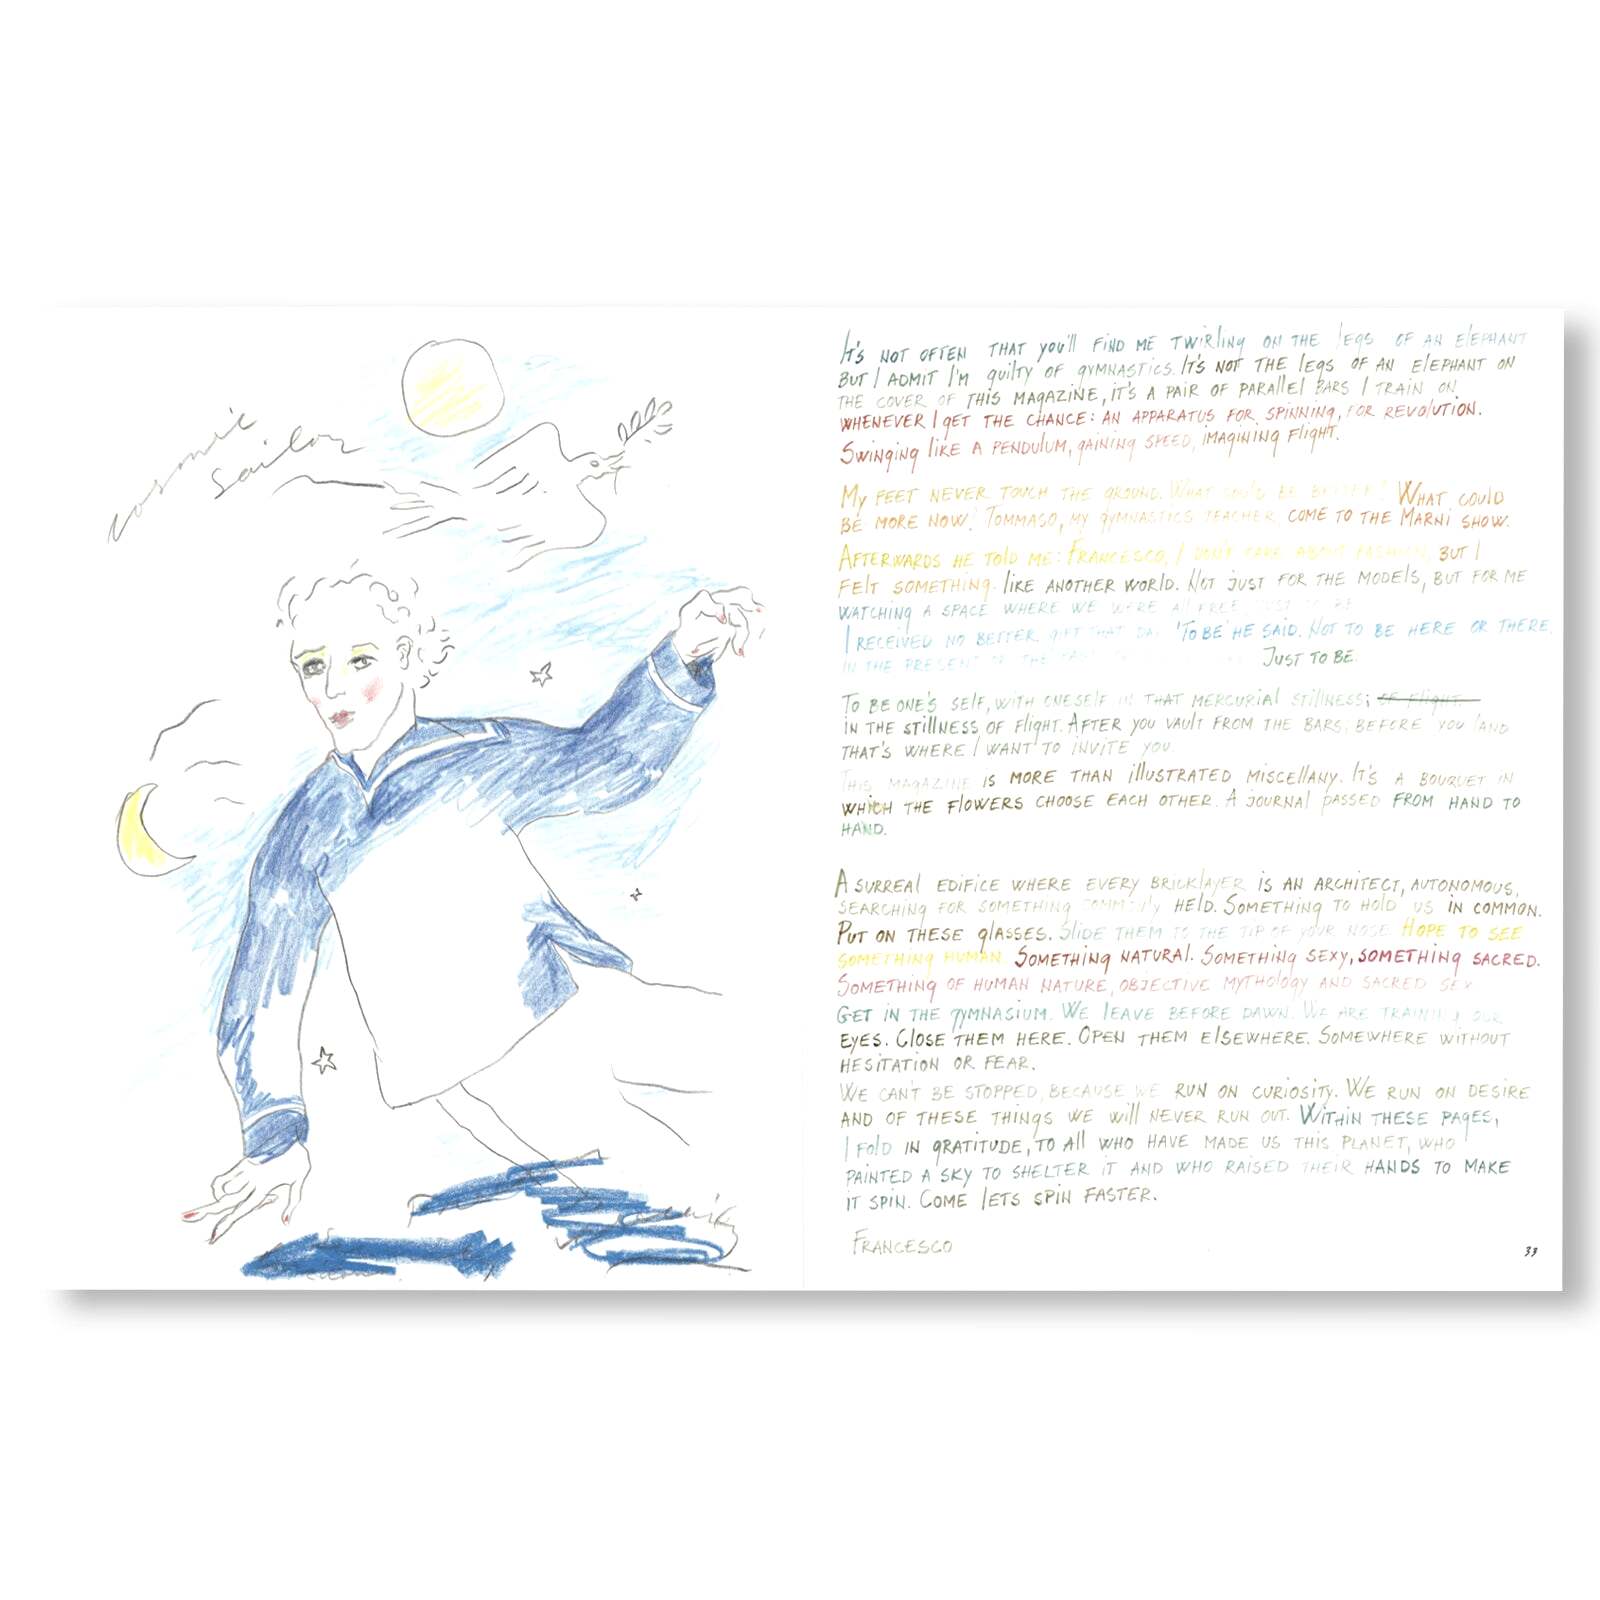 cosmic
sailor
It's not often that you'll find me twirling on the legs of an elephant
but I admit I'm guilty of gymnastics. It's not the legs of an elephant on
the cover of this magazine, it's a pair of parallel bars I train on
whenever I get the chance: an apparatus for spinning, for revolution.
Swinging like a pendulum, gaining speed, imagining flight.
My feet never touch the ground. What could be better? What could
be more now? Tommaso, my gymnastics teacher, come to the Marni show.
Afterwards he told me: Francesco, I don't care about fashion, but I
felt something. like another world. Not just for the models, but for me
watching a space where we were all free just to be
I received no better gift that day 'To be' he said. Not to be here or there,
in the present or the past Just to be.
To be one's self, with oneself in that mercurial stillness; of flight
in the stillness of flight. After you vault from the bars, before you land
that's where I want to invite you
This magazine is more than illustrated miscellany. It's a bouquet in
which the flowers choose each other. A journal passed from hand to
hand.
A surreal edifice where every bricklayer is an architect, autonomous,
searching for something commonly held. Something to hold us in common.
Put on these glasses. Slide them to the tip of your nose Hope to see
something human. Something natural. Something sexy, something sacred.
Something of human nature, objective mythology and sacred sex
Get in the gymnasium. We leave before dawn. We are training our
eyes. Close them here. Open them elsewhere. Somewhere without
hesitation or fear.
We can't be stopped, because we run on curiosity. We run on desire
and of these things we will never run out. Within these pages,
I fold in gratitude, to all who have made us this planet, who
painted a sky to shelter it and who raised their hands to make
it spin. Come lets spin faster.
Francesco
33